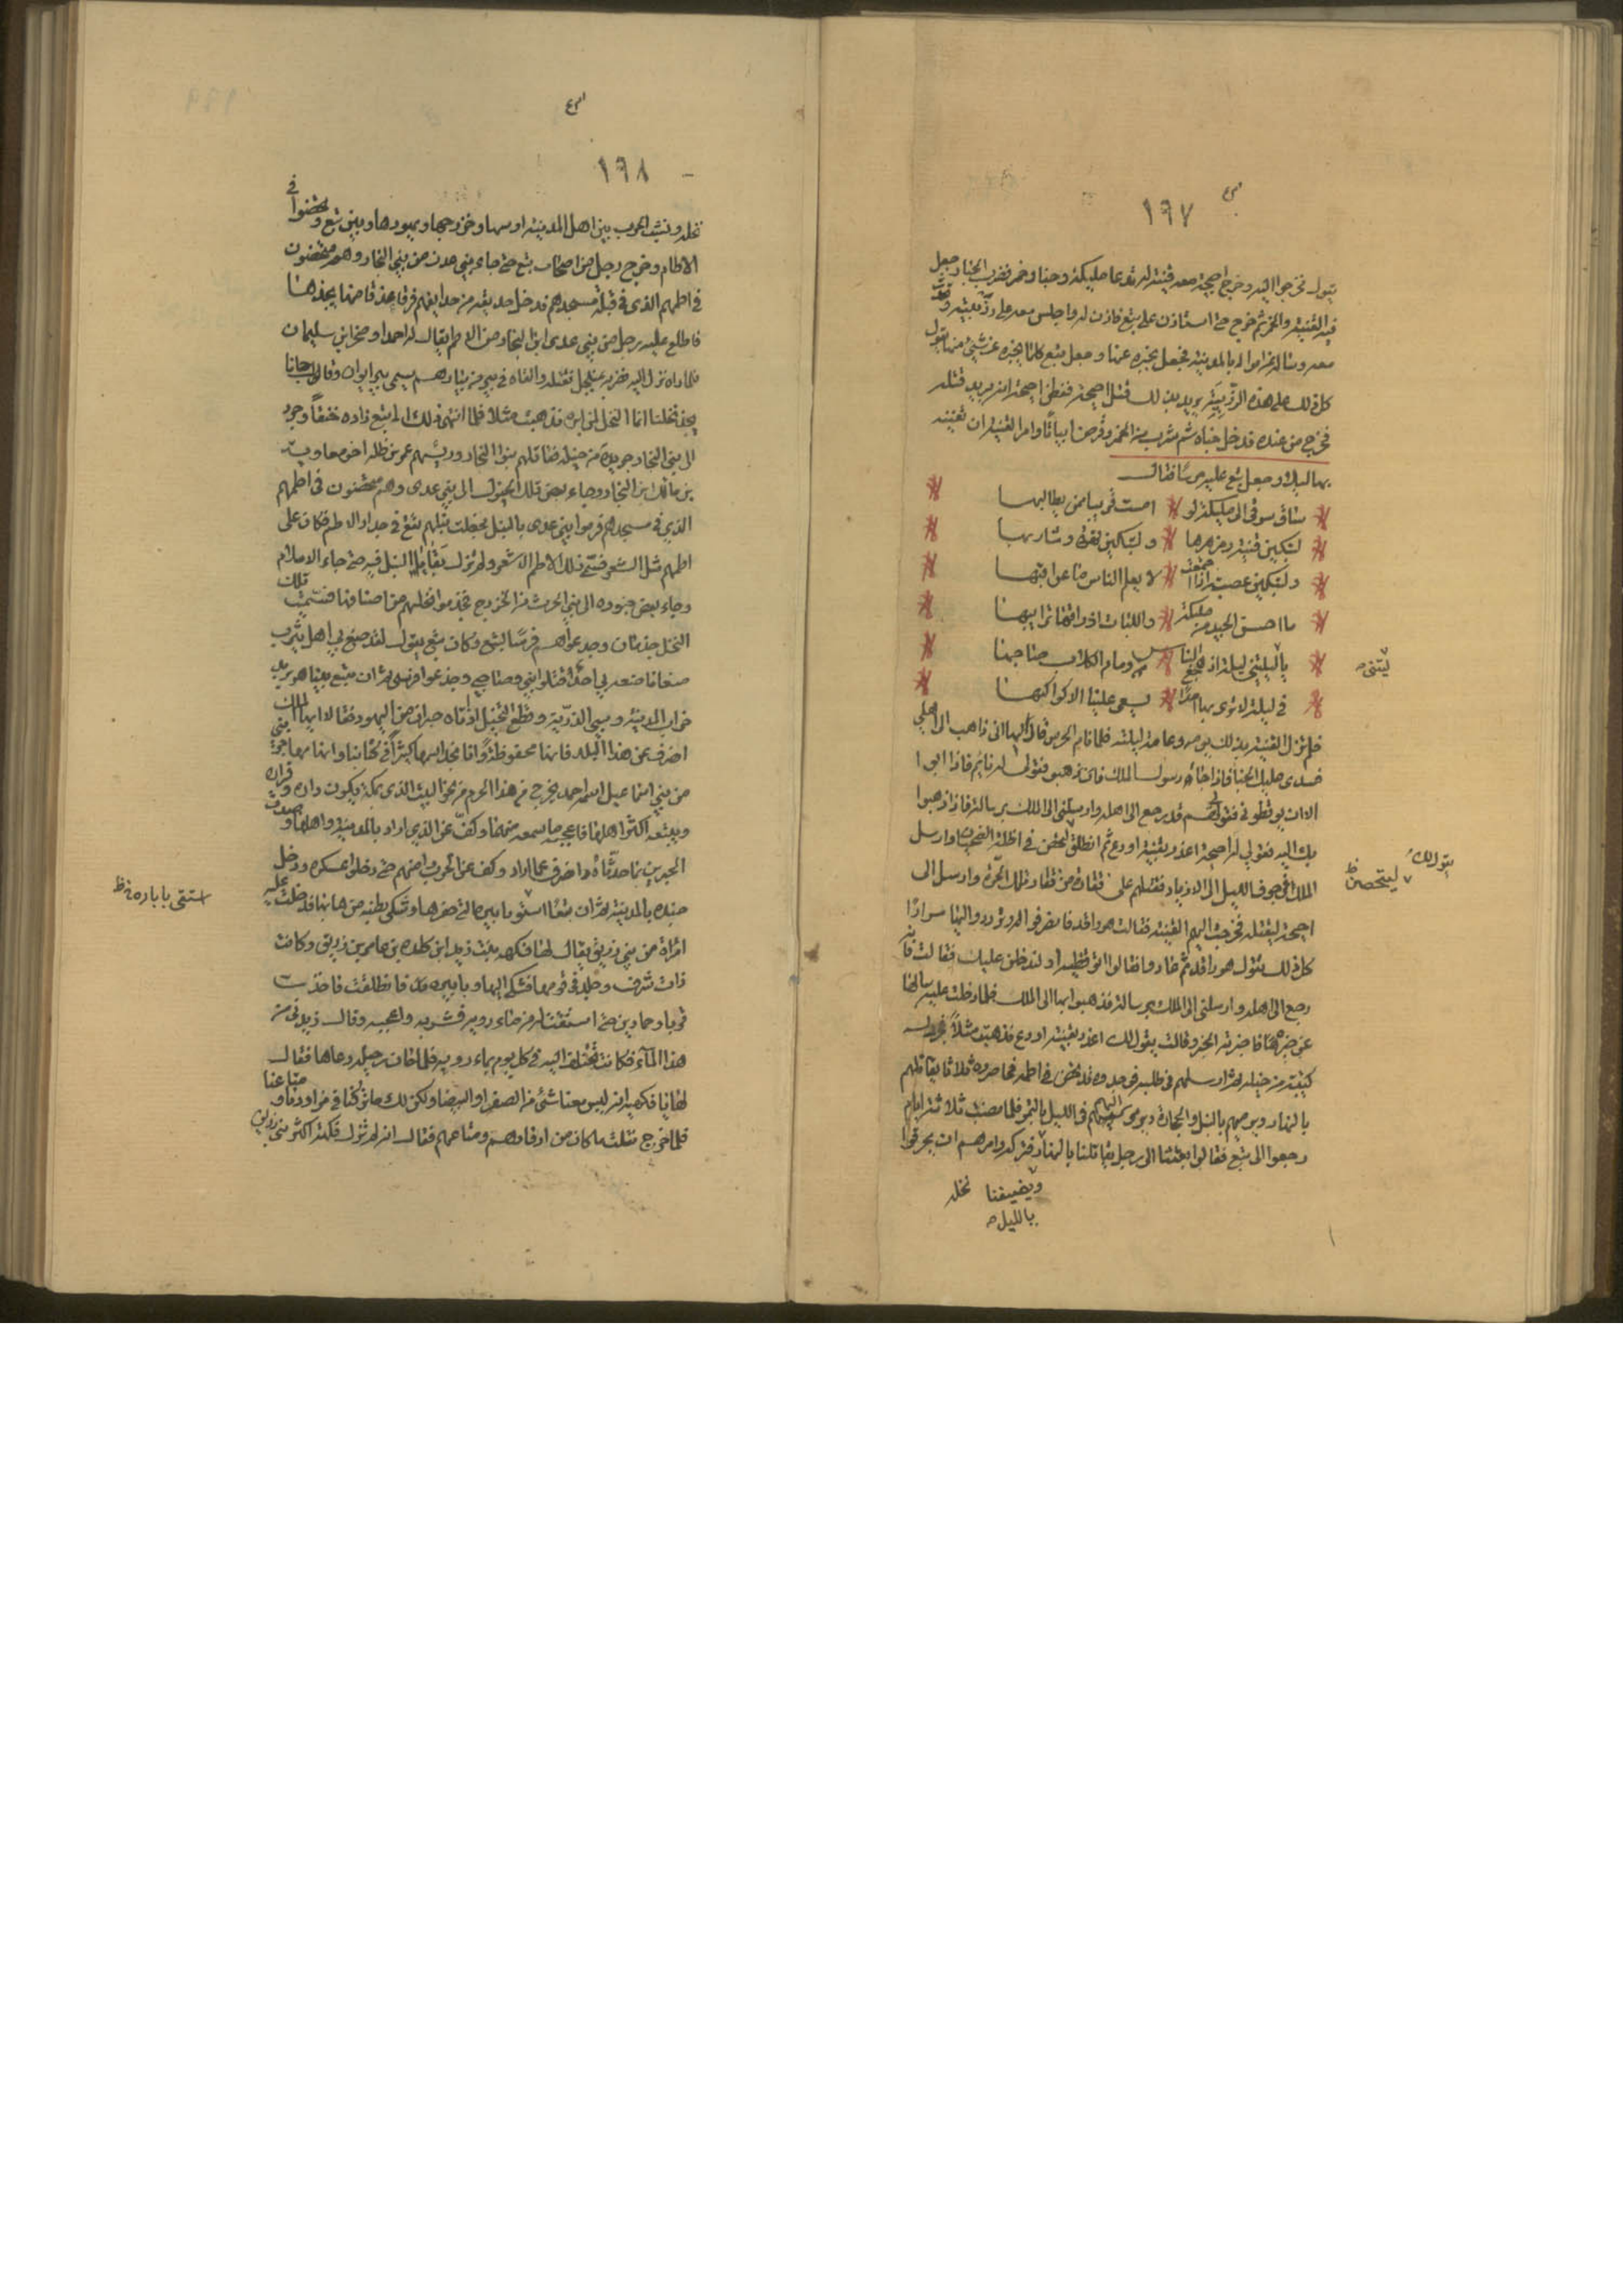 ١٦٧
يقول فخرجوا اليه وخرج احيحة معه قينة له تدعا مليكة وخبا وخمر فضرب الخبا وجعل
فيه القينة والخمر ثم خرج حتى استاذن على تبع فاذن له واجلسه معه على زربية وتحدث
معه وساله عن امواله بالمدينة فجعل يخبره عنها وجعل تبع كلما يخبره عن شيئ منها يقول
كل ذلك على هذه الزربية يريد بذلك قتل احيحة ففطن احيحة انه يريد قتله
فخرج من عنده فدخل خباه ثم شرب من الخمر وقرض ابياتا وامر القينة ان تغنيه
بها ليلا وجعل تبع عليه حرسا فقال
ستاق سوقى الى مليكة لو امست قريبا من يطالبها
لتبكين قينة ومزهرها ولتبكين قهوة وشاربها
ولتبكين عصبة اذا اجتمعت لا يعلم الناس ما عواقبها
ما احسن الجيد من مليكة واللبات اذ زانها ترايبها
يا ليلتي ليلة اذ هجع الناس ونام الكلاب صاحبها
في ليلة لا نرى بها احدا يسعى علينا الا كواكبها
فلم تزل القينة بذلك يومه وعامة ليلته فلما نام الحرس قال لها انى ذاهب الى اهلي
فسدى عليك الخبا فاذا جاء رسول الملك فقولى له نايم فاذا ابوا
الا ان يوقظونى فقولى لهم قد رجع الى اهله وارسلنى الى الملك برسالة فاذا ذهبوا
بك اليه فقولي له احيحة اغدر بقينة او دع ثم انطلق فتحصن في اطمة الضحيان وارسل
الملك فى جوف الليل الى الازياد فقتلهم على فقارة من فقار تلك الحرة وارسل الى
احيحة ليقتله فخرجت اليهم القينة فقالت هو راقد فانصرفوا وترددوا اليها مرارا
كل ذلك تقول هو راقد ثم عادوا فقالوا لتوقظنه او لندخلن عليك فقالت فانه
رجع الى اهله وارسلنى الى الملك برسالة فذهبوا بها الى الملك فلما دخلت عليه سالها
عن خبره فاخبرته الخبر وقالت يقول لك اغدر بقينة او دع فذهبت مثلا فجرد له
كتيبة من خيله ثم ارسلهم في طلبه فوجدوه قد تحصن في اطمه فحاصروه ثلاثا يقاتلهم
بالنهار ويرميهم بالنبل والحجارة ويرمى اليهم في الليل بالتمر فلما مضت ثلاثة ايام
رجعوا الى تبع فقالوا بعثتنا الى رجل يقاتلنا بالنهار فتركه وامرهم ان يحرقوا
ويضيفنا بالليل
نخله
ليتنى
يقول لك
ليتحصن ظ
١٦٨
نخله ونشبت الحرب بين اهل المدينة اوسها وخزرجها ويهودها وبين تبع وتحصنوا في
الاطام وخرج رجل من اصحاب تبع حتى جاء بنى عدى من بنى النجار وهم متحصنون
في اطمهم الذى في قبلة مسجدهم فدخل حديقة من حدايقهم فرقا عذقا منها يجذها
فاطلع عليه رجل من بنى عدى ابن النجار من الاطم يقال له احمد او صخر ابن سليمان
فلما راه نزل اليه فضربه بمنجل فقتله والقاه في بير من بيارهم
يجذ نخلنا انما النخل لمن ابره فذهبت مثلا فلما انتهى ذلك الى تبع زاده حنقا وجرد
الى بنى النجار جريدة من خيله فقاتلهم بنوا النجار ورئيسهم عمرو بن طلة اخو معاوية
بن مالك ابن النجار وجاء بعض تلك الخيول الى بنى عدى وهم متحصنون في اطمهم
الذي في مسجدهم فرموا بنى عدى بالنبل فجعلت نبلهم تقع في جدار الاطم فكان على
اطمهم مثل الشعر فسمى ذلك الاطم الاشعر ولم تزل بقايا النبل فيه حتى جاء الاسلام
وجاء بعض جنوده الى بنى الحرث من الخزرج فجذموا نخلهم من انصافها فسميت تلك
النخل جذمان وجدعواهم فرسا لتبع وكان تبع يقول لقد صنع بي اهل يثرب
صنعا ما صنعه بي احد قتلوا ابنى وصاحبى وجدعوا فرسى ثم ان تبع بينا هو يريد
خراب المدينة وسبي الذرية وقطع النخيل اذ اتاه حبران من اليهود فقالا ايها الملك
انصرف عن هذا البلد فانها محفوظة وانا نجد اسمها كثيرا في كتابنا وانها مهاجر نبى
من بني اسماعيل اسمه احمد يخرج من هذا الحرم من نحو البيت الذى بمكة يكون داره وقراره
ويتبعه اكثر اهلها فاعجبه ما سمعه منهما وكف عن الذي اراد بالمدينة واهلها وصدق
الحبرين بما حدثاه وانصرف عما اراد وكف عن الحرب وامنهم حتى دخلوا عسكره ودخل
جنده بالمدينة ثم ان تبعا استوبا بيره التى حفرها وتشكى بطنه من مائها فدخلت عليه
امراة من بني زريق يقال لها فكهة بنت زيد ابن كلده بن عامر بن زريق وكانت
ذات شرف وجلد في قومها فشكى اليها وبا بيره فانطلقت فاخذت
قربا وحمارين حتى استقت له من ماء رومه فشربه واعجبه وقال زيدني من
هذا المآء فكانت تختلف اليه في كل يوم بماء رومه فلما حان رحيله دعاها فقال
لها يا فكهة انه ليس معنا شئ من الصفرا والبيضا ولكن لك ما تركنا في من ازوادنا ومتاعنا
فلما خرج نقلت ما كان من ازوادهم ومتاعهم فقال انه لم تزل فكهة اكثر بنى زريق
استقى با باره ظ